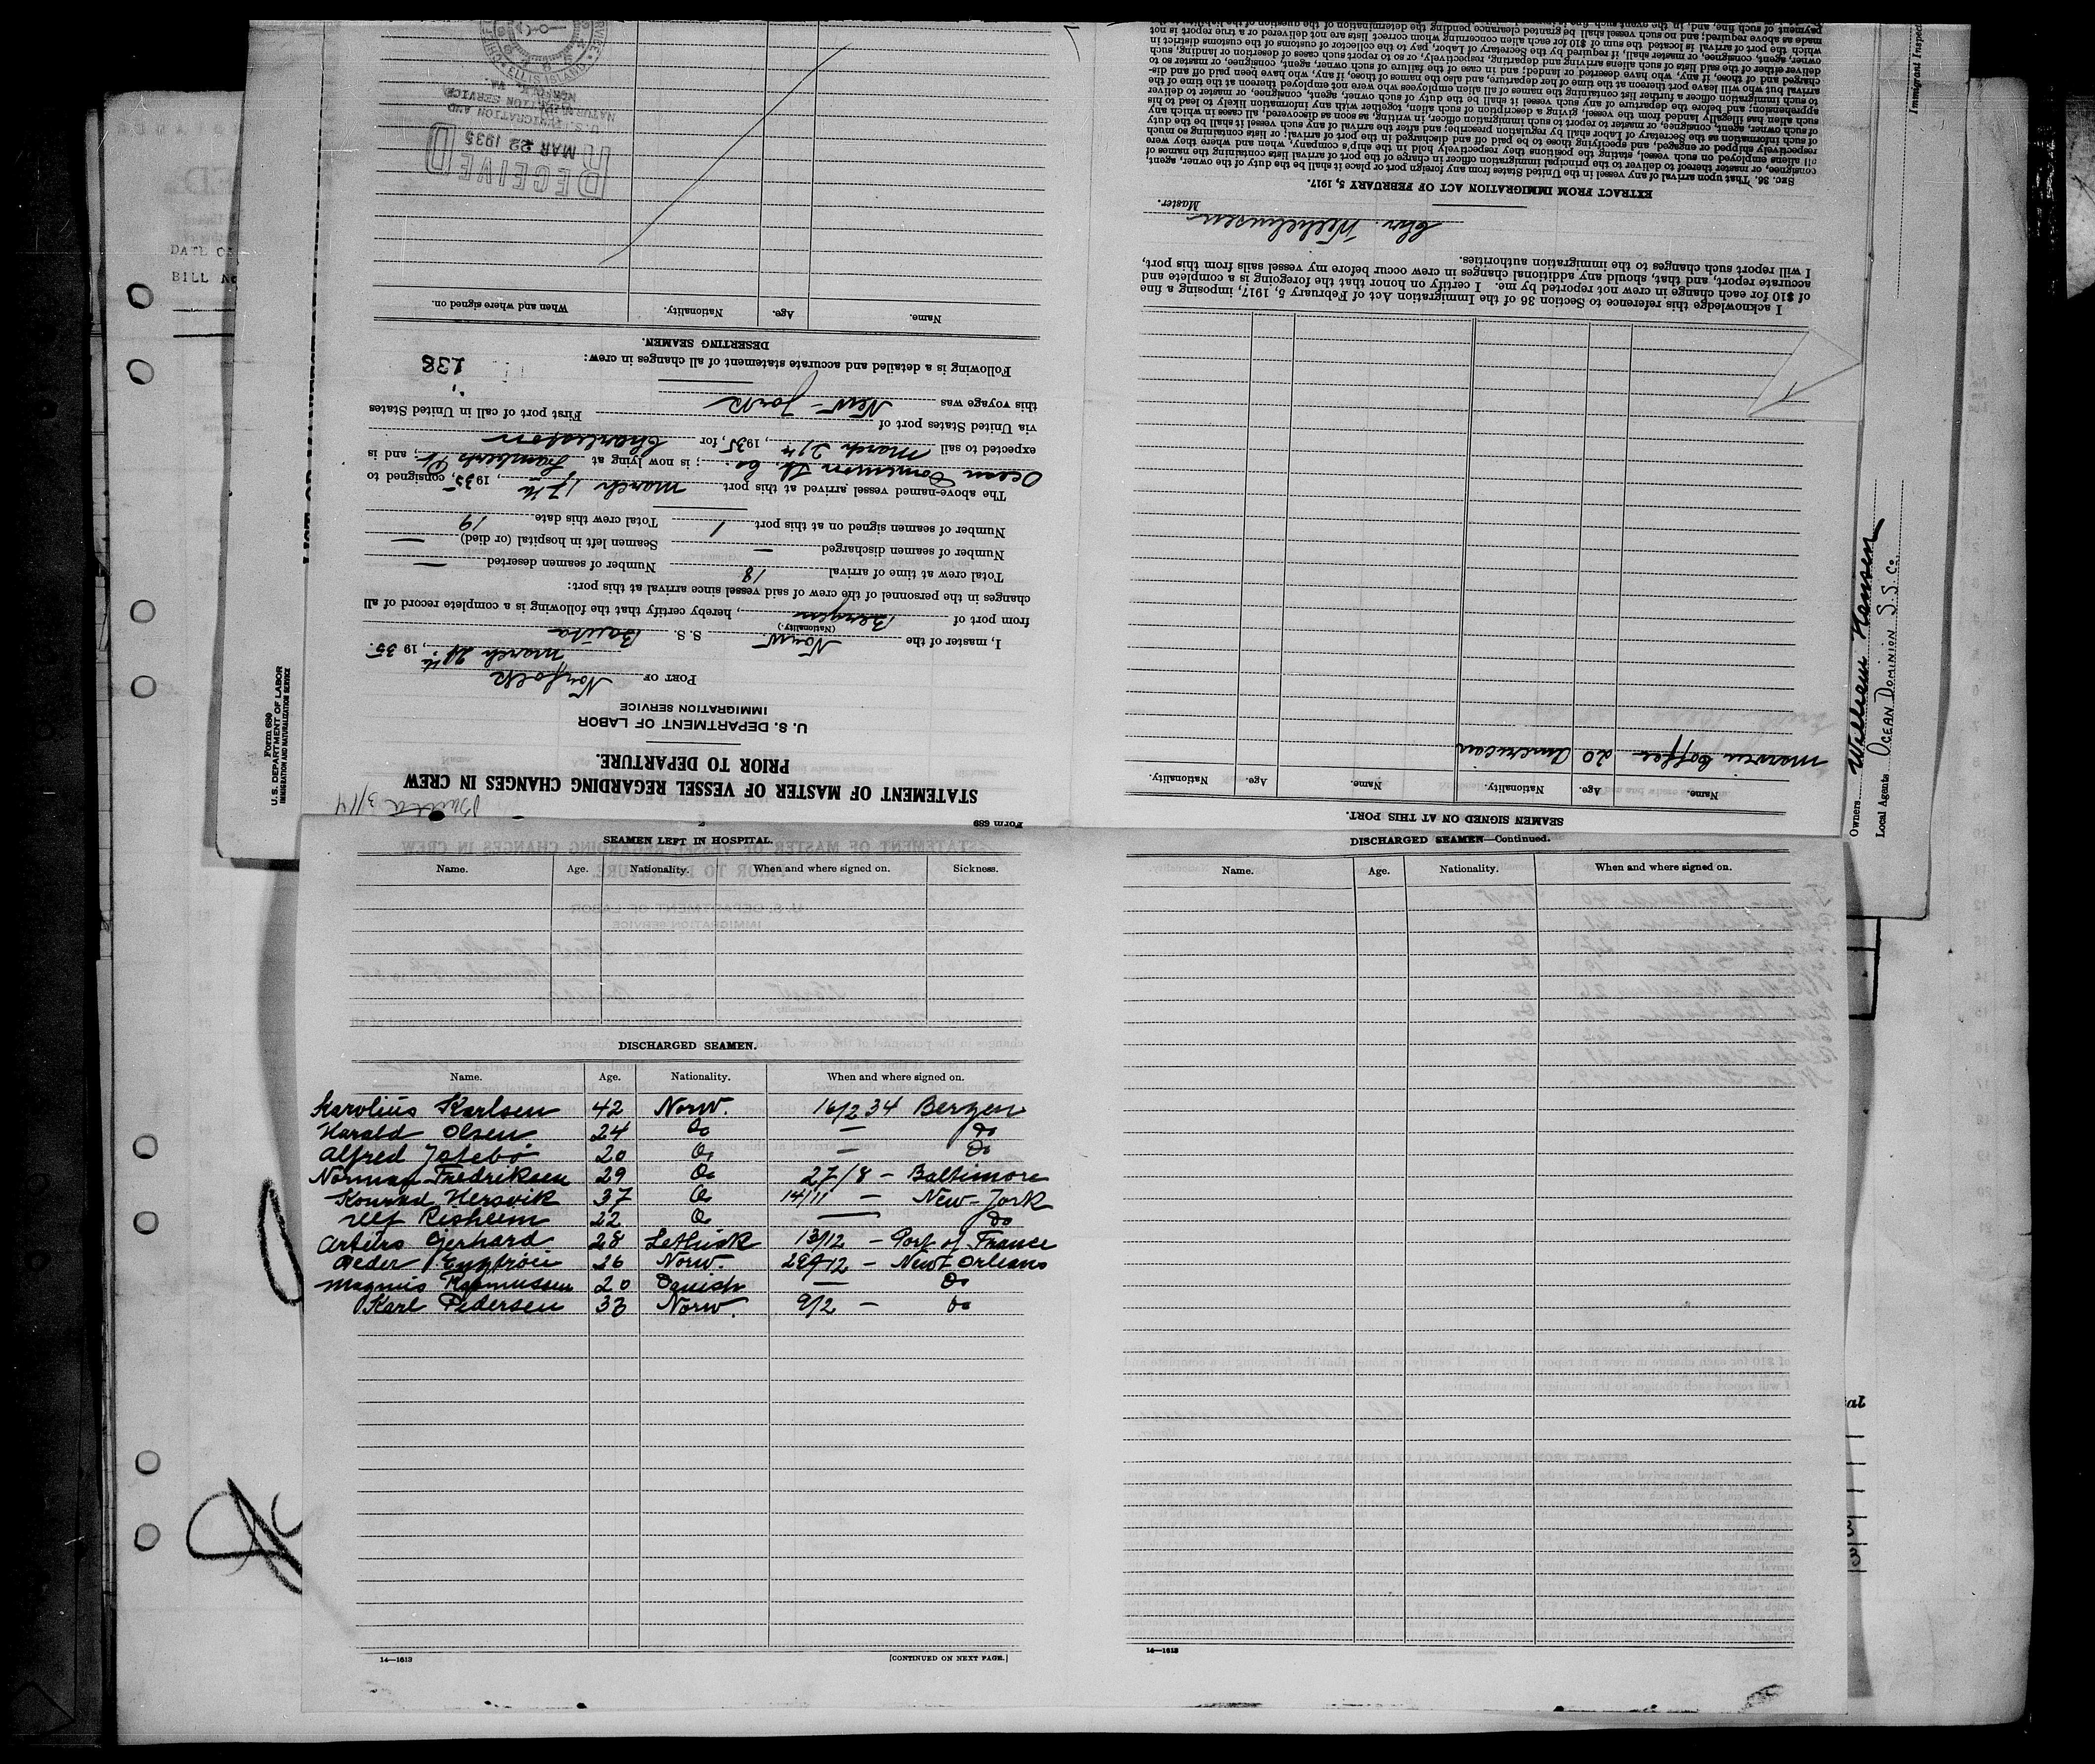 Form 689
STATEMENT OF MASTER OF VESSEL REGARDING CHANGES IN CREW
PRIOR TO DEPARTURE.
U. S. DEPARTMENT OF LABOR
IMMIGRATION SERVICE
PORT OF Norfolk
March 21, 1935.
I, master of the Norw S. S.
(Nationality.)
from port of Bergen, hereby certify that the following is a complete record of all
changes in the personnel of the crew of said vessel since arrival at this port:
Total crew at time of arrival 18 Number of seamen deserted —
Number of seamen discharged — Seamen left in hospital (or died) —
Number of seamen signed on at this port 1 Total crew this date 19
The above-named vessel arrived at this port March 17th, 1935, consigned to
Ocean Dominion SS. Co.; is now lying at Lamberts Pt., and is
expected to sail March 21st, 1935, for Charleston
via United States port of
this voyage was New-York First port of call in United States
Following is a detailed and accurate statement of all changes in crew:
138
DESERTING SEAMEN.
Name. Age. Nationality. When and where signed on.
RECEIVED
MAR 22 1935
U.S. IMMIGRATION AND
NATURALIZATION SERVICE
NORFOLK, VA.
ELLIS ISLAND
SEAMEN SIGNED ON AT THIS PORT.
Name. Age. Nationality. Name. Age. Nationality.
Marvin Coffee 20 American
I acknowledge this reference to Section 36 of the Immigration Act of February 5, 1917, imposing a fine
of $10 for each change in crew not reported by me. I certify on honor that the foregoing is a complete and
accurate report, and that, should any additional changes in crew occur before my vessel sails from this port,
I will report such changes to the immigration authorities.
Chr. Wilhelmsen
Master.
EXTRACT FROM IMMIGRATION ACT OF FEBRUARY 5, 1917.
SEC. 36. That upon arrival of any vessel in the United States from any foreign port or place it shall be the duty of the owner, agent,
consignee, or master thereof to deliver to the principal immigration officer in charge of the port of arrival lists containing the names of
all aliens employed on such vessel, stating the positions they respectively hold in the ship's company, when and where they were
respectively shipped or engaged, and specifying those to be paid off and discharged in the port of arrival; or lists containing so much
of such information as the Secretary of Labor shall by regulation prescribe; and after the arrival of any such vessel it shall be the duty
of such owner, agent, consignee, or master to report to such immigration officer, in writing, as soon as discovered, all cases in which any
such alien has illegally landed from the vessel, giving a description of such alien, together with any information likely to lead to his
apprehension; and before the departure of any such vessel it shall be the duty of such owner, agent, consignee, or master to deliver
to such immigration officer a further list containing the names of all alien employees who were not employed thereon at the time of the
arrival but who will leave port thereon at the time of her departure, and also the names of those, if any, who have been paid off and dis-
charged and of those, if any, who have deserted or landed; and in case of the failure of such owner, agent, consignee, or master so to
deliver either of the said lists of such aliens arriving and departing, respectively, or so to report such cases of desertion or landing, such
owner, agent, consignee, or master shall, if required by the Secretary of Labor, pay to the collector of customs of the customs district in
which the port of arrival is located the sum of $10 for each alien concerning whom correct lists are not delivered or a true report is not
made as above required; and no such vessel shall be granted clearance pending the determination of the question of the liability to the
payment of such fine, and, in the event such fine
DATE OF
BILL No
Form 680
U. S. DEPARTMENT OF LABOR
IMMIGRATION AND NATURALIZATION SERVICE
Immigrant Inspec
Owners Willem Hansen
Local Agents OCEAN DOMINION S.S. Co.
SEAMEN LEFT IN HOSPITAL.
Name. Age. Nationality. When and where signed on. Sickness.
DISCHARGED SEAMEN.
Name. Age. Nationality. When and where signed on.
Karolius Karlsen 42 Norw. 16/2 34 Bergen
Harald Olsen 24 Do — Do
Alfred Jotebø 20 Do — Do
Norman Fredriksen 29 Do 27/8 — Baltimore
Konrad Hersvik 37 Do 14/11 — New-York
Ulf Risheim 22 Do — Do
Arturs Gerhard 28 13/12 — Port of France
Peder 26 Norw. 12 — New Orleans
Magnus Rasmussen 20 Danish — Do
Karl Pedersen 33 Norw. 9/2 — Do
14—1613 [CONTINUED ON NEXT PAGE.]
DISCHARGED SEAMEN—Continued.
Name. Age. Nationality. When and where signed on.
14—1613